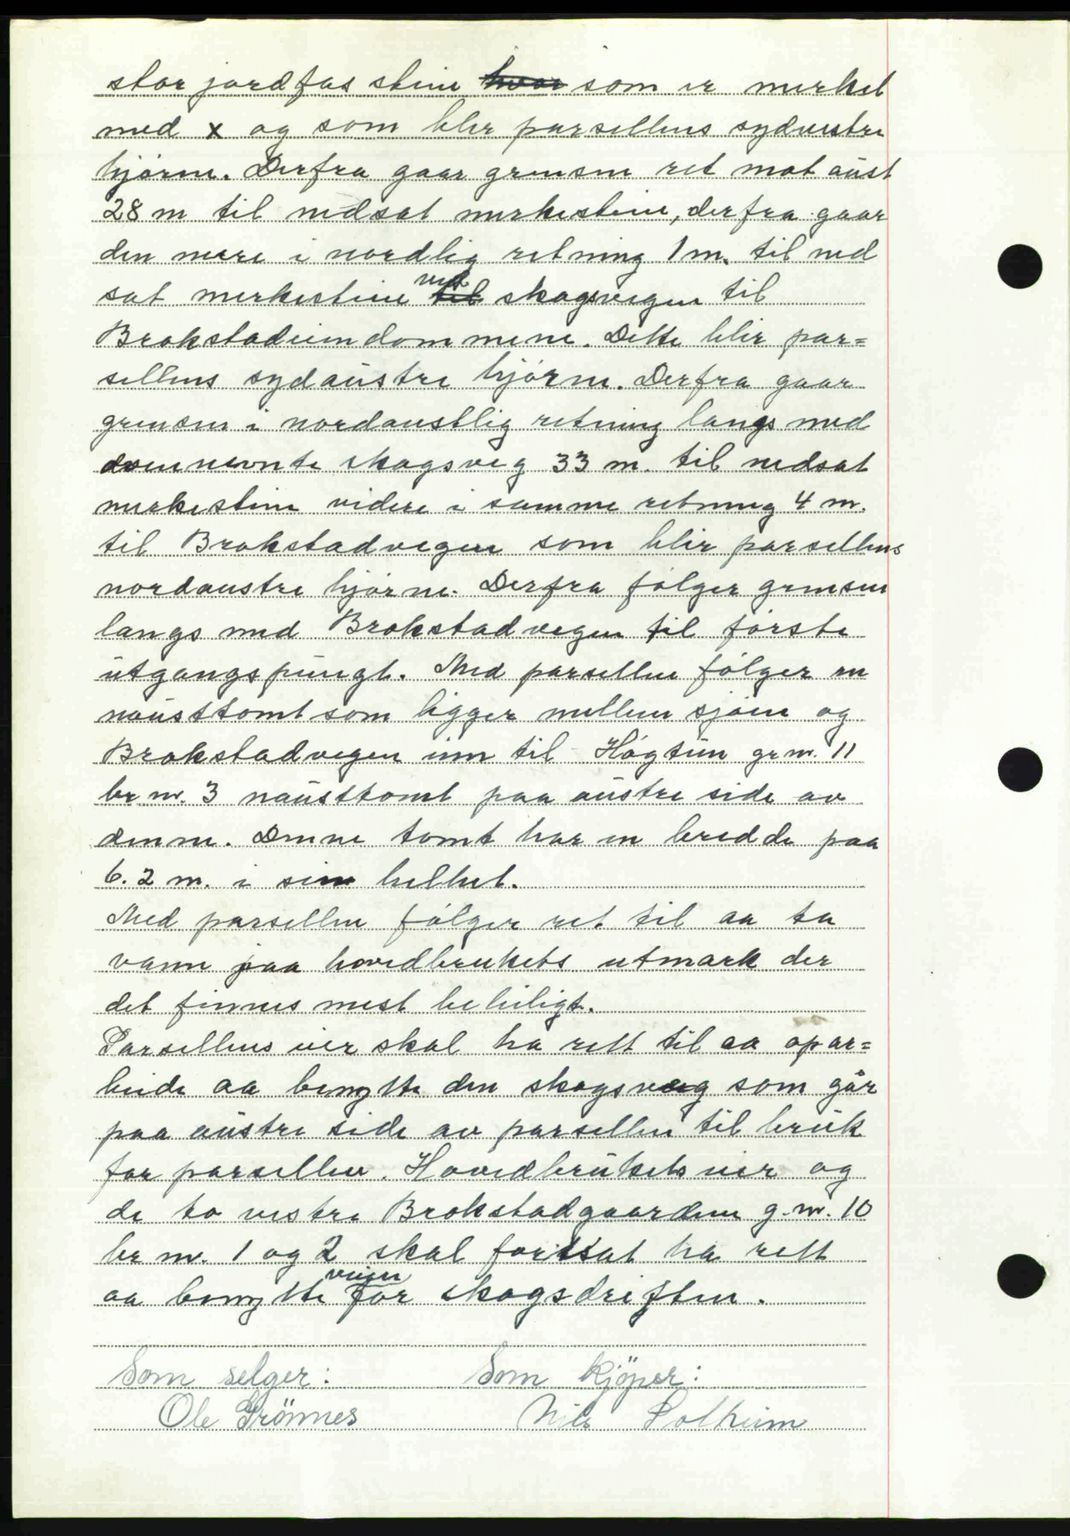 stor jordfas stein hvor som er merket
med x og som blir parsellens sydvestre
hjørne. Derfra gaar grensen ret mot aust
28 m til nedsat merkestein, derfra gaar
den mere i nordlig retning 1 m. til ned
sat merkestein til ved skogsvegen til
Brokstadeiendommene. Dette blir par=
sellens sydaustre hjørne. Derfra gaar
grensen i nordaustlig retning langs med
ovennevnte skogsveg 33 m. til nedsat
merkestein videre i samme retning 4 m.
til Brokstadvegen som blir parsellens
nordaustre hjørne. Derfra følger grensen
langs med Brokstadvegen til første
utgangspungt. Med parsellen følger en
nausttomt som ligger mellem sjøen og
Brokstadvegen inn til Høgtun gr.nr. 11
br nr. 3 nausttomt paa austre side av
denne. Denne tomt har en bredde paa
6.2 m. i sin helhet.
Med parsellen følger ret til aa ta
vann paa hovedbrukets utmark der
det finnes mest beleiligt.
Parsellens eier skal ha rett til aa opar=
beide aa benytte den skogsveg som går
paa austre side av parsellen til bruk
for parsellen. Hovedbrukets eier og
de to vestre Brokstadgaardene g.nr. 10
br nr. 1 og 2 skal fortsat ha rett
aa benytte veien for skogsdriften.
Som selger: Som kjöper:
Ole Grönnes Nils Solheim